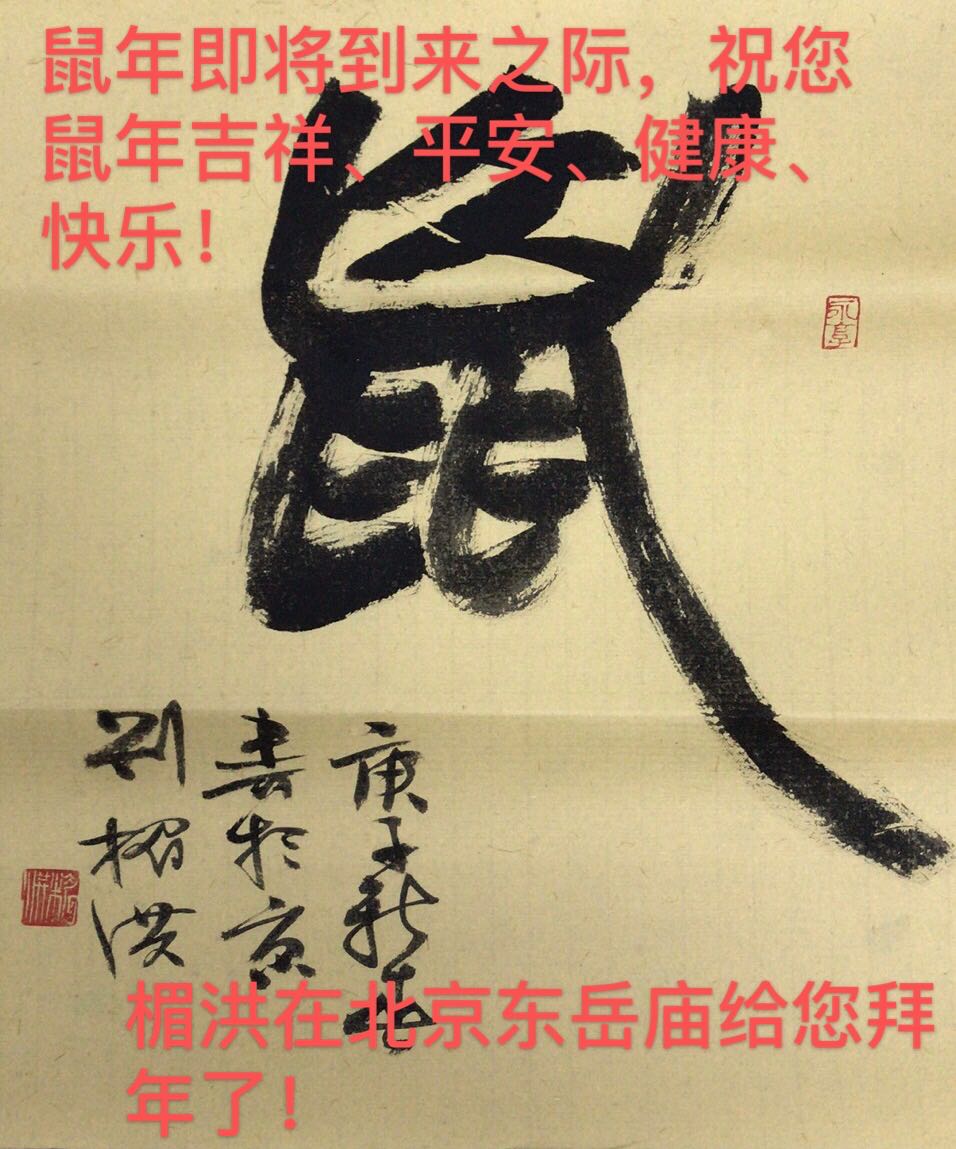 鼠年即将到来之际，祝您
鼠年吉祥、平安、健康、
快乐！
鼠
永享
庚子新春
书於京
刘楣洪
楣洪在北京东岳庙给您拜
年了！